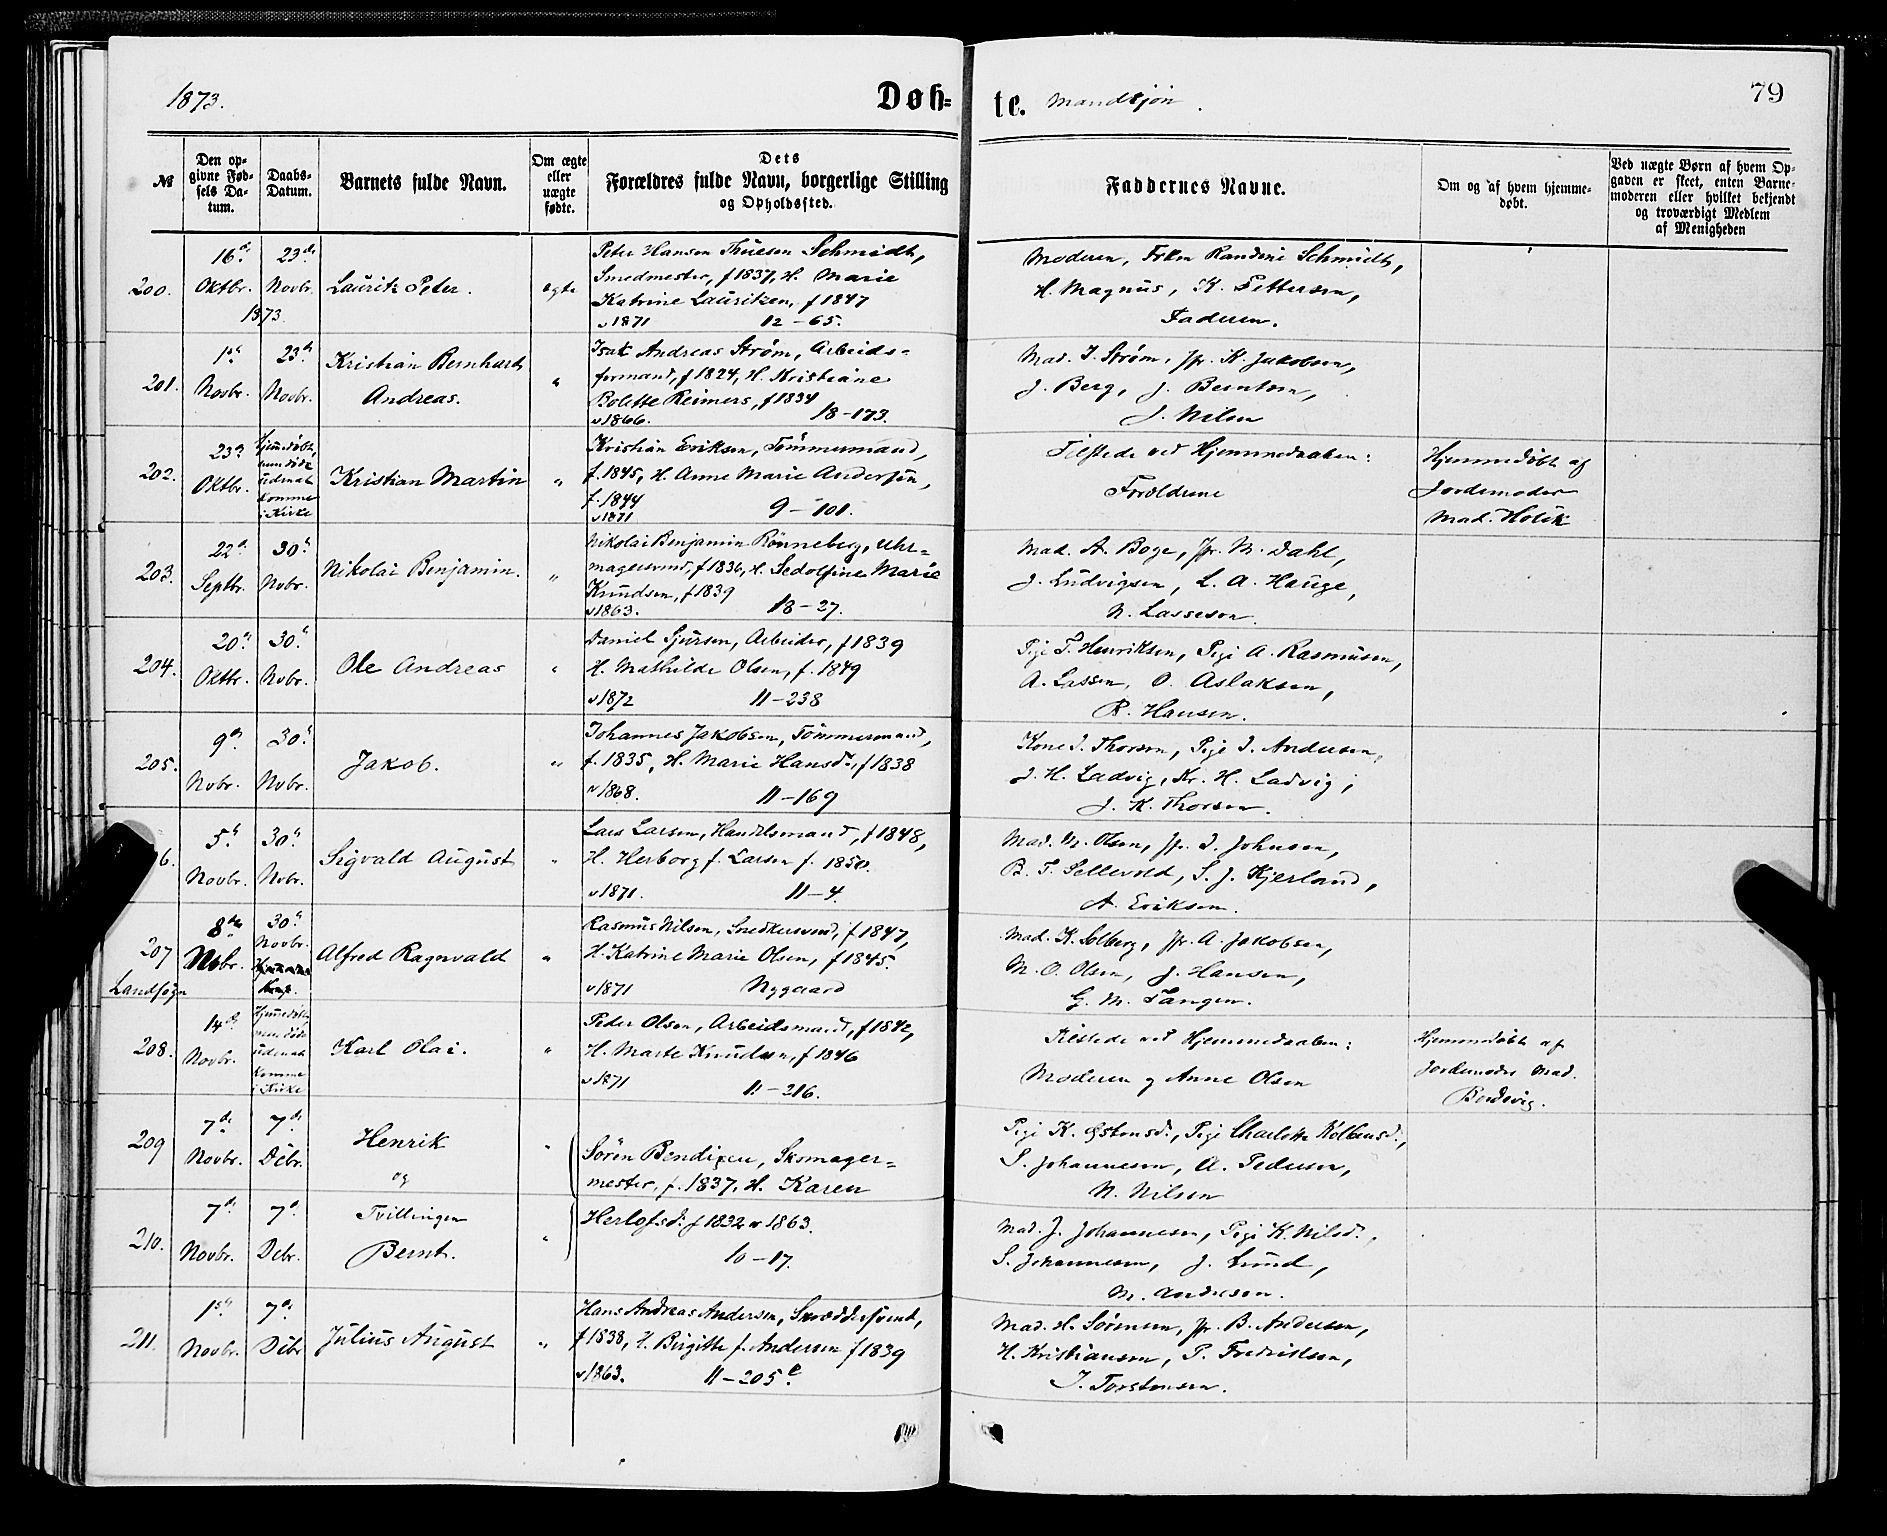 1873.
Døb=
te. Mandkjøn.
79
№
Den op=
givne Fød=
sels Da=
tum.
Daabs=
Datum.
Barnets fulde Navn.
Om ægte
eller
uægte
fødte.
Dets
Forældres fulde Navn, borgerlige Stilling
og Opholdssted.
Faddernes Navne.
Om og af hvem hjemme=
døbt.
Ved uægte Børn af hvem Op=
gaven er skeet, enten Barne=
moderen eller hvilket bekjendt
og troværdigt Medlem
af Menigheden
200.
16de
Oktbr.
1873.
23de
Novbr.
Lauritz Peter.
ægte
Peter Hansen Thuesen Schmidt,
Smedmester, f 1837, H. Marie
Katrine Lauritzen, f 1847
v 1871 12-65.
Moderen, Frkn Randine Schmidt,
H. Magnus, K. Pettersen,
Faderen.
201.
1ste
Novbr.
23de
Novbr.
Kristian Bernhard
Andreas.
"
Isak Andreas Strøm, Arbeids=
formand, f 1824, H. Kristiane
Bolette Reimers, f 1834
v 1866. 18-173.
Mad. I. Strøm, Jfr. K. Jakobsen,
J. Berg, J. Berntsen,
J. Nilsen
202.
23de
Oktbr.
Hjemmedøbt,
men døde
uden at
komme
i Kirke
Kristian Martin
"
Kristian Eriksen, Tømmermand,
f. 1845, H. Anne Marie Andersen,
f. 1844
v 1871 9-101.
Tilstede ved Hjemmedaaben:
Forældrene
Hjemmedøbt af
Jordemoder
Mad. Holck
203.
22de
Septbr.
30te
Nvbr.
Nikolai Benjamin.
"
Nikolai Benjamin Rønneberg, Uhr=
magersvend, f 1836, H. Sedolfine Marie
Knudsen, f 1839
v 1863. 18-27.
Mad. A. Boge, Jfr. M. Dahl,
J. Ludvigsen, L. A. Hauge,
N. Lassesen.
204.
20de
Oktbr.
30te
Nvbr.
Ole Andreas
"
Daniel Sjursen, Arbeider, f 1839
H. Mathilde Olsen, f. 1849
v 1872 11-238
Pige T. Henriksen, Pige A. Rasmusen,
A. Lassen, O. Aslaksen,
R. Hansen.
205.
9de
Nvbr.
30te
Nvbr.
Jakob.
"
Johannes Jakobsen, Tømmermand,
f. 1835, H. Marie Hansd., f 1838
v 1868. 11-169
Kone I. Thorsen, Pige I. Andersen,
J. H. Ladvig, Kr. H. Ladvig,
J. K. Thorsen.
6.
5te
Novbr.
30te
Nvbr.
Sigvald August
"
Lars Larsen, Handelsmand, f 1848,
H. Herborg f. Larsen f. 1850.
v 1871. 11-4.
Mad. M. Olsen, Jfr. I. Johnsen,
B. T. Sellevold, S. J. Kjerland,
A. Eriksen.
207
Landsogn
8de
Nvbr.
30te
Novbr.
Alfred Ragnvald
"
Rasmus Nilsen, Snedkersvend, f 1847,
H. Katrine Marie Olsen, f 1845.
v 1871 Nygaard
Mad. K. Solberg, Jfr. A. Jakobsen,
M. O. Olsen, J. Hansen,
G. M. Tangen.
208.
14de
Novbr.
Hjemmedøbt,
men døde
uden at
komme
i Kirke
Karl Olai.
"
Peder Olsen, Arbeidsmand, f 1842,
H. Marte Knudsen, f 1846
v 1871 11-216.
Tilstede ved Hjemmedaaben:
Moderen og Anne Olsen
Hjemmedøbt af
Jordemoder Mad.
Bredvig.
209
7de
Novbr.
7de
Debr.
Henrik
og
"
Søren Bendixen, Skomager=
mester, f. 1837, H. Karen
Herlofsd. f 1832 v 1863.
10-17.
Pige K. Østensd., Pige Charlotte Kolbensd.,
S. Johannesen, A. Pedersen,
N. Nilsen
210.
7de
Novbr.
7de
Debr.
Tvillingen
Bernt.
"
Mad. J. Johannesen, Pige K. Nilsd.,
S. Johannesen, J. Lund,
M. Andresen.
211.
1ste
Novbr.
7de
Debr
Julius August
"
Hans Andreas Andersen, Skræddersvend,
f 1838, H. Birgitte f. Andersen f 1839
v 1863. 11-205 e
Mad. H. Sørensen, Jfr. B. Andersen,
H. Kristiansen, P. Fredriksen,
T. Torstensen.